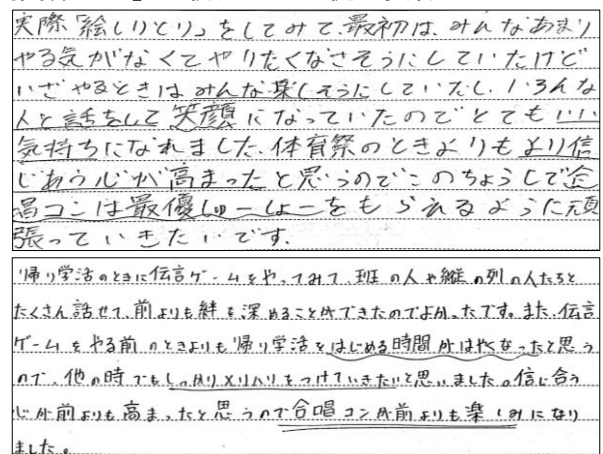 実際「絵しりとり」をしてみて、最初は、みんなあまり
やる気がなくてやりたくなさそうにしていたけど
いざやるときはみんな楽しそうにしていたし、いろんな
人と話をして笑顔になっていたのでとてもいい
気持ちになれました。体育祭のときよりもより信
じあう心が高まったと思うのでこのちょうしで合
唱コンは最優しゅーしょーをもらえるように頑
張っていきたいです。
帰り学活のときに伝言ゲームをやってみて、班の人や縦の列の人たちと
たくさん話せて、前よりも絆を深めることができたのでよかったです。また、伝言
ゲームをやる前のときよりも帰り学活をはじめる時間がはやくなったと思う
ので、他の時でもしっかりメリハリをつけていきたいと思いました。信じ合う
心が前よりも高まったと思うので合唱コンが前よりも楽しみになり
ました。